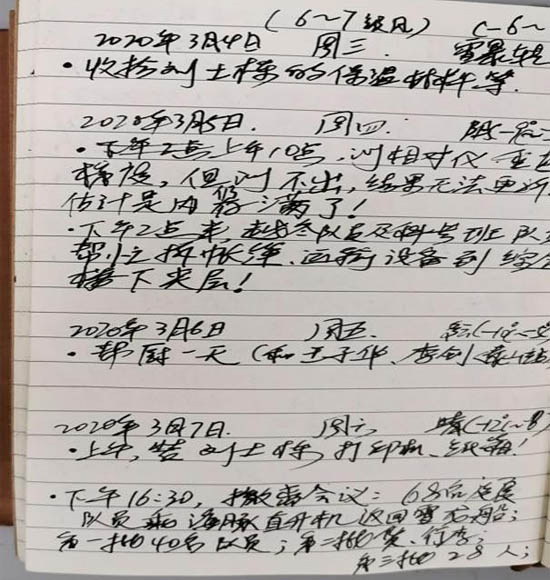 (6~7级风) (-6~
2020年3月4日 周三. 雪暴转
·收拾刘士栋的保温材料等.
2020年3月5日. 周四.
·下午2点上午10点,测相对仪
梯度,但测不出,结果无法更新
估计是内存满了!
·下午2点半,越冬队员及科考班队
帮忙拆帐篷、运荷设备到综合
楼下夹层!
2020年3月6日 周五. (-10~-5
·帮厨一天(和王子华、李剑
2020年3月7日. 周六 晴(-12~-8)
·上午,装刘士栋,打印机、纸箱!
·下午16:30,撤离会议: 68名度夏
队员乘海豚直升机返回雪龙船;
第一批40名队员;第二批货、行李;
第三批28人;